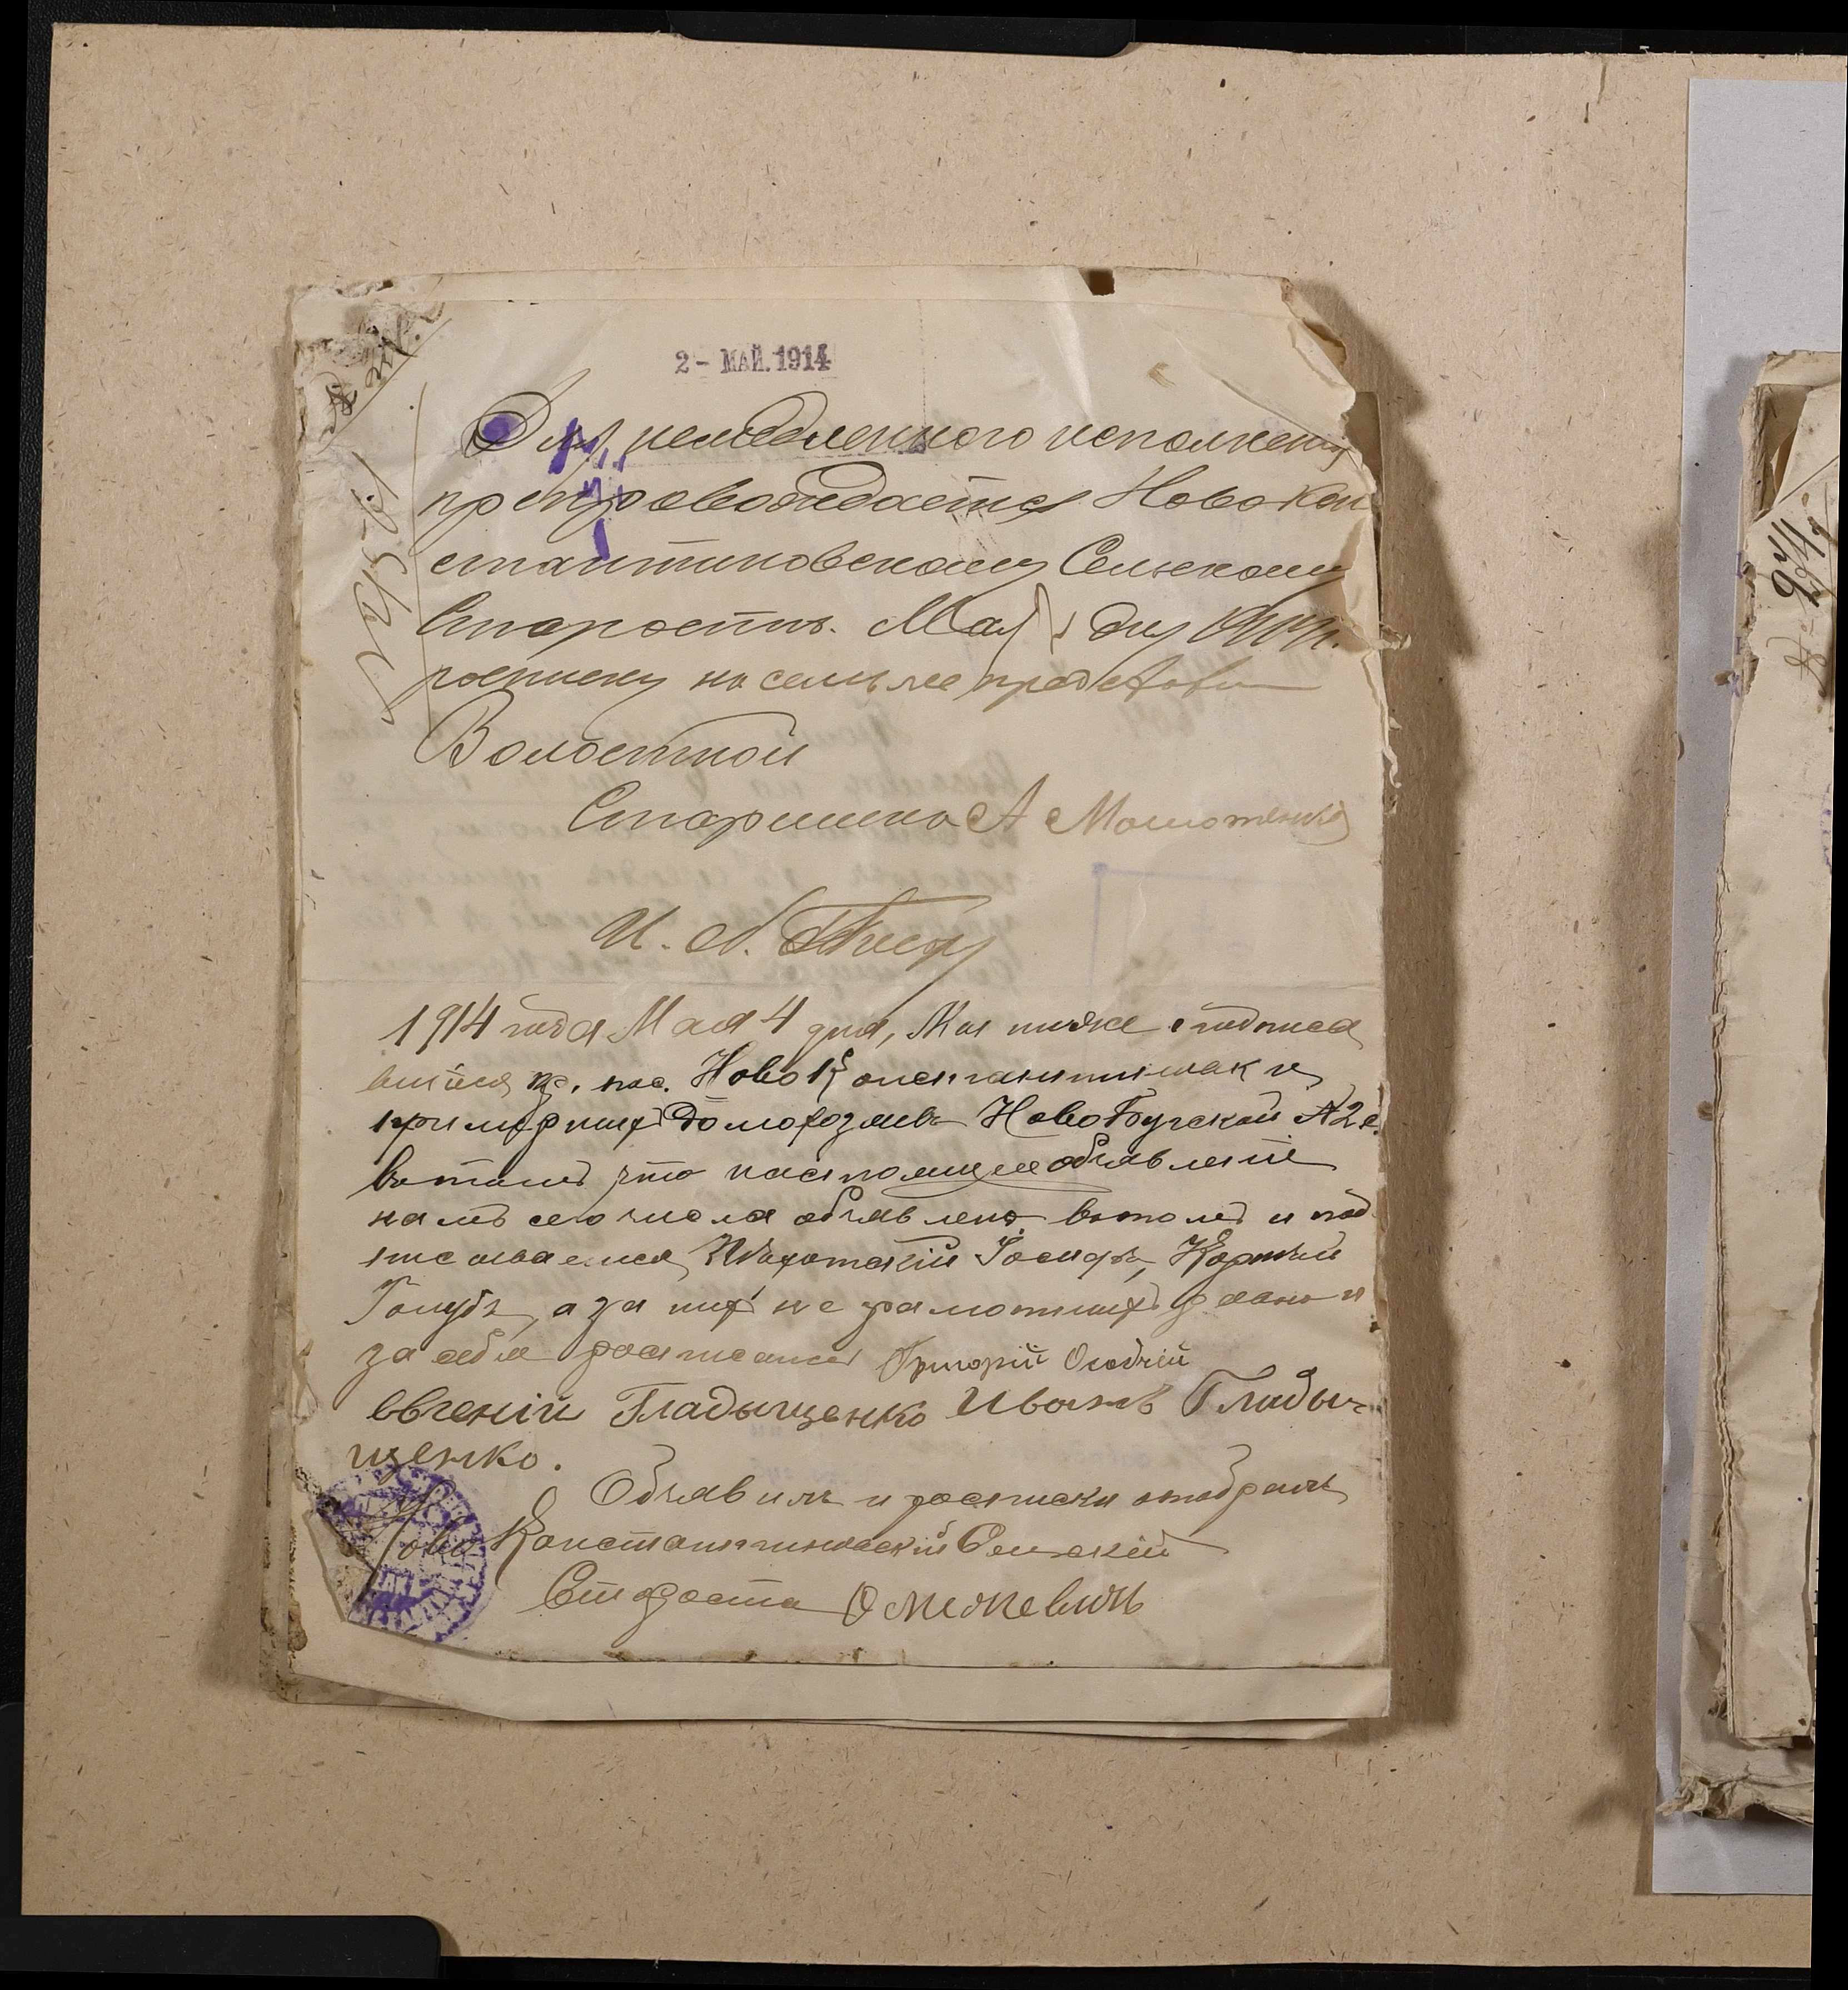 2 - МАЙ.1914
Для немедленного исполненія
препровождается Новокон
стантиновскому Сельскому
Старостѣ. Мая дня 1914 г.
росписку на семъ же представ
Волостной
Старшина А
И. д. Писаря
1914 года Мая 4 дня, Мы ниже подписа
вшіеся кр. пос. Ново Константиновки
примѣрныхъ Домохозяевъ НовоБугской
въ томъ что настоящее объявленіе
намъ сего числа объявлено въ томъ и под
писываемся Іосифъ, Корнѣй
Голубъ, а за нихъ не грамотныхъ и
за себя росписался Григорій
Евгеній Гладыщенко ИванъГлады-
щенко.
Объявилъ и росписки отобралъ
Ново Константиновскій Сельскій
Староста Омелевичъ